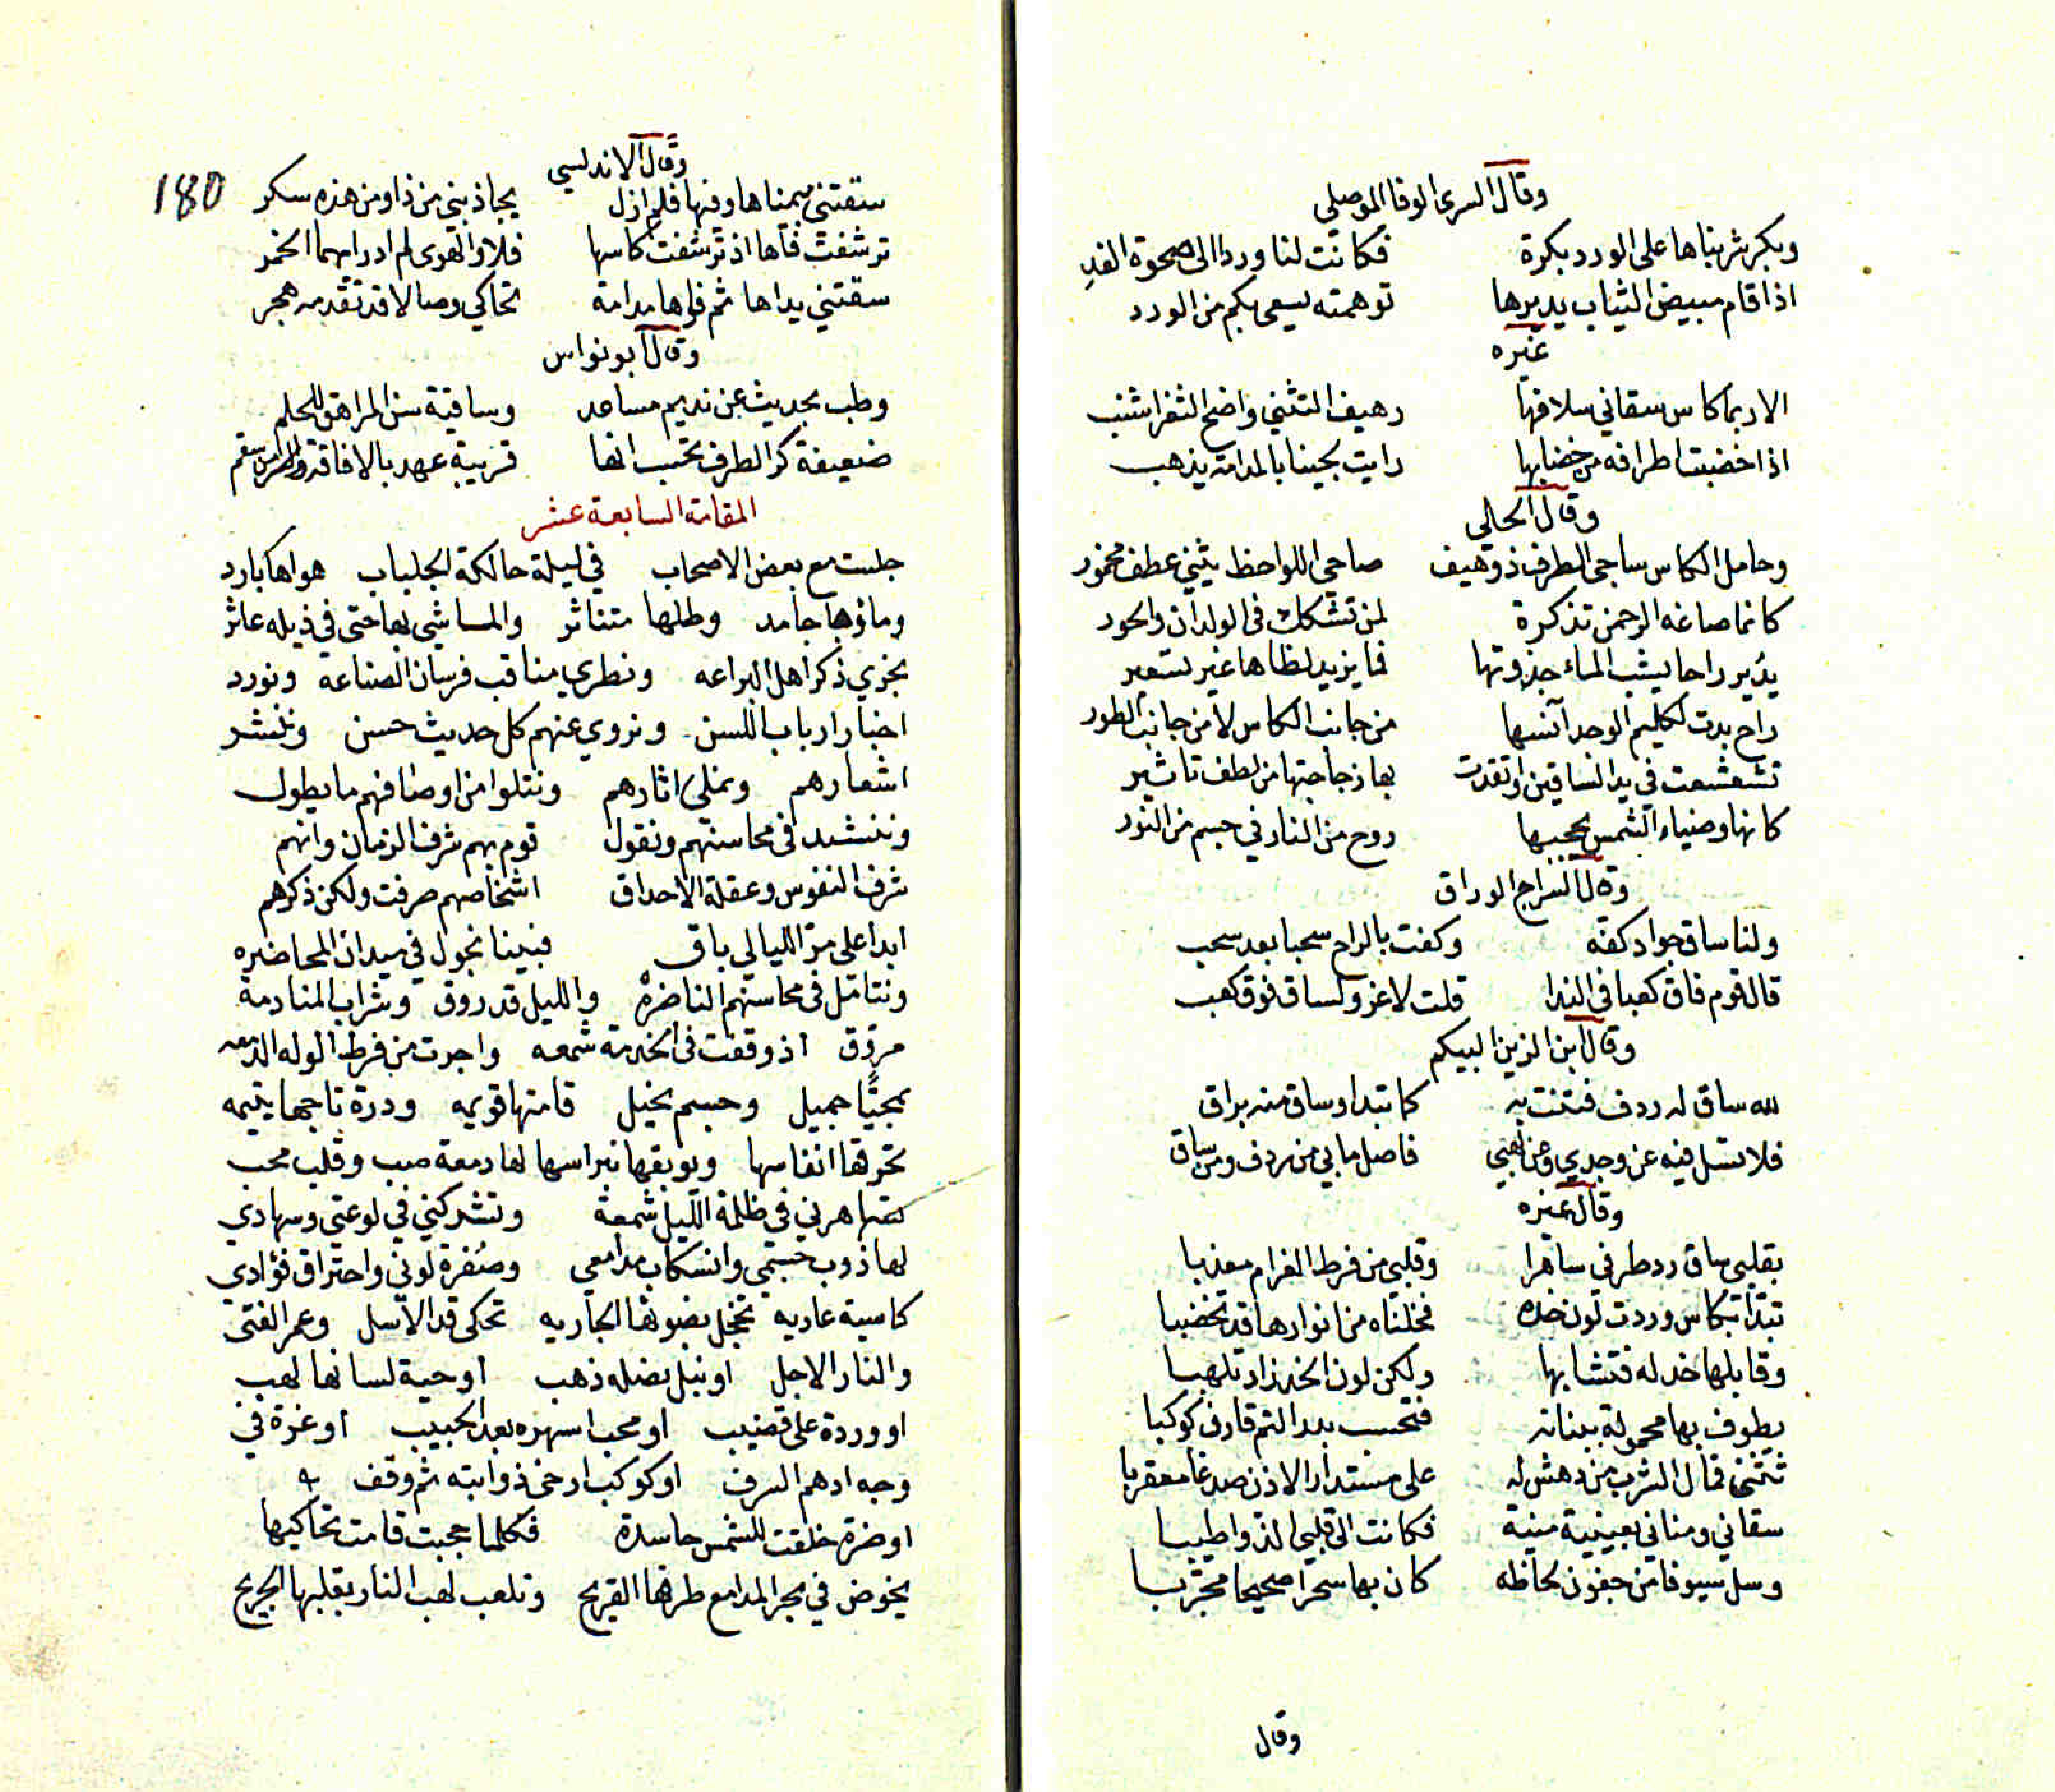 وقال السرى الوفا الموصلي
وبكر شربناها على الورد بكرة فكانت لنا وردا الى صحوة الغد
اذا قام مبيض الثياب يديرها توهمته يسعى بكم من الورد
غيره
الا ربما كاس سقاني سلافها رهيف التثني واضح الثغر اشنب
اذا خضبت اطرافه من خضابها رايت لجينا بالمدامة يذهب
وقال الحالى
وحامل الكاس ساجى الطرف ذو هيف صاحى اللواحظ يثني عطف مخمور
كانما صاغه الرحمن تذكرة لمن تشكك فى الولدان والحور
يدير راحا يشب الماء جذوتها فما يزيد لظاها غير تسعير
راح بدت لكليم الوجد آنسها من جانب الكاس لا من جانب الطور
تشعشعت في يد الساقين واتقدت بها زجاجتها من لطف تاثير
كانها وضياء الشمس يحجبها روح من النار في جسم من النور
وقال السراج الوراق
ولنا ساق جواد كفه وكفت بالراح سحبا بعد سحب
قال قوم فاق كعبا فى الندا قلت لا غرو لساق فوق كعب
وقال ابن الزين البيكم
لله ساق له ردف فتنت به كما تبدا وساق منه براق
فلا تسل فيه عن وجدي وعن لهبي فاصل ما بي من ردف ومن ساق
وقال غيره
بقلبي ساق رد طرفى ساهرا وقلبي من فرط الغرام معذبا
تبدا بكاس وردت لون خده فخلناه من انوارها قد تخضبا
وقابلها خد له فتشابها ولكن لون الخد زاد تلهبا
يطوف بها محمولة ببنانه فتحسب بدر التم قارن كوكبا
تثنى فمال الشرب من دهش له على مستدار الاذن صدغا معقربا
سقاني ومناني بعينيه منية فكانت الى قلبي الذ واطيبا
وسل سيوفا من جفون لحاظه كان بها سحرا صحيحا مجربا
وقال
180
وقال الاندلسي
سقتني بيمناها وفيها فلم ازل يجاذبني من ذا ومن هذه سكر
ترشفت فاها اذ ترشفت كاسها فلا والهوى لم ادر ايهما الخمر
سقتني يداها ثم فاها مدامة تحاكي وصالا قد تقدمه هجر
وقال ابو نواس
وطب بحديث عن نديم مساعد وساقية سن المراهق للحلم
ضعيفة كر الطرف تحسب انها قريبة عهد بالافاقة من سقم
المقامة السابعة عشر
جلست مع بعض الاصحاب في ليلة حالكة الجلباب هواها بارد
وماؤها جامد وطلها متناثر والماشي بها حتى في ذيله عاثر
نجري ذكر اهل البراعه ونطري مناقب فرسان الصناعه ونورد
اخبار ارباب اللسن ونروي عنهم كل حديث حسن وننشر
اشعارهم ونملي اثارهم ونتلوا من اوصافهم ما يطول
وننشد فى محاسنهم ونقول قوم بهم شرف الزمان وانهم
شرف النفوس وعقلة الاحداق اشخاصهم صرفت ولكن ذكرهم
ابدا على مر الليالي باق فبينا نجول في ميدان المحاضره
ونتامل فى محاسنهم الناضرة والليل قد روق وشراب المنادمة
مروق اذ وقفت فى الخدمة شمعه واجرت من فرط الوله الدمعه
بمحيا جميل وجسم نحيل قامتها قويمه ودرة تاجها يتيمه
تحرقها انفاسها ويوبقها نبراسها لها دمعة صب وقلب محب
تساهرني في ظلمة الليل شمعة وتشركني في لوعتي وسهادي
لها ذوب جسمي وانسكاب مدامعي وصفرة لوني واحتراق فؤادي
كاسية عاريه تخجل بضوئها الجاريه تحكى قد الاسل وعمر الفتى
والنار الاجل او نبل نصله ذهب او حية لسانها لهب
او وردة على قضيب او محب اسهره بعد الحبيب او غرة في
وجه ادهم السرف او كوكب ارخى ذوابته ثم وقف
او ضرة خلقت للشمس حاسدة فكلما حجبت قامت تحاكيها
يخوض في بحر المدامع طرفها القريح وتلعب لهب النار بقلبها الجريح